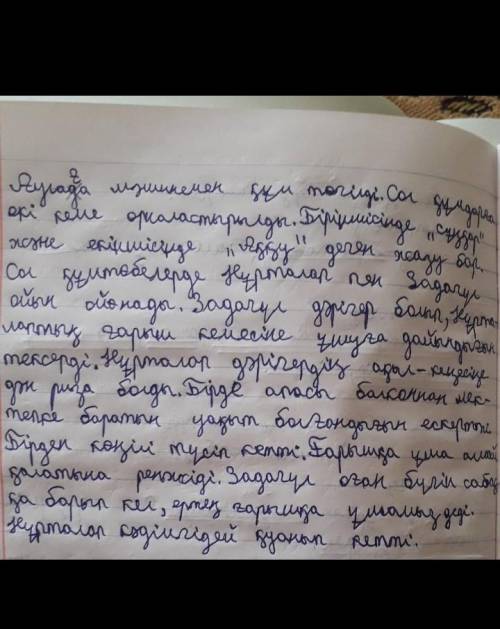 Аулаға машинамен құм төгілді. Сол құмдарға
екі кеме орналастырылды. Біріншісінде „Сұңқар"
және екіншісінде „Аққу" деген жазу бар.
Сол құмтөбелерде Нұрталар пен Задагүл
ойын ойнады. Задагүл дәрігер болып, Нұрта-
лаптың ғарыш кемесіне ұшуға дайындығын
тексерді. Нұрталап дәрігердің ақыл-кеңесіне
дән риза болды. Бірде апасы балконнан мек-
тепке баратын уақыт болғандығын ескертті.
Бірден көңілі түсіп кетті. Ғарышқа ұша алмай
қалатына ренжіді. Задагүл оған бүгін сабақ-
қа барып кел, ертең ғарышқа ұшамыз деді.
Нұрталап кәдімгідей қуанып кетті.